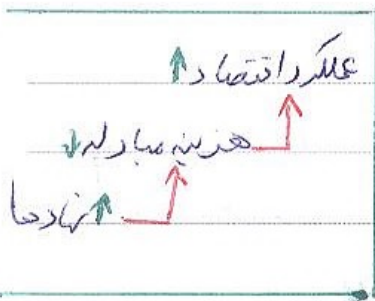 عملکرد اقتصاد ↑
هزینه مبادله ↓
نهادها ↑